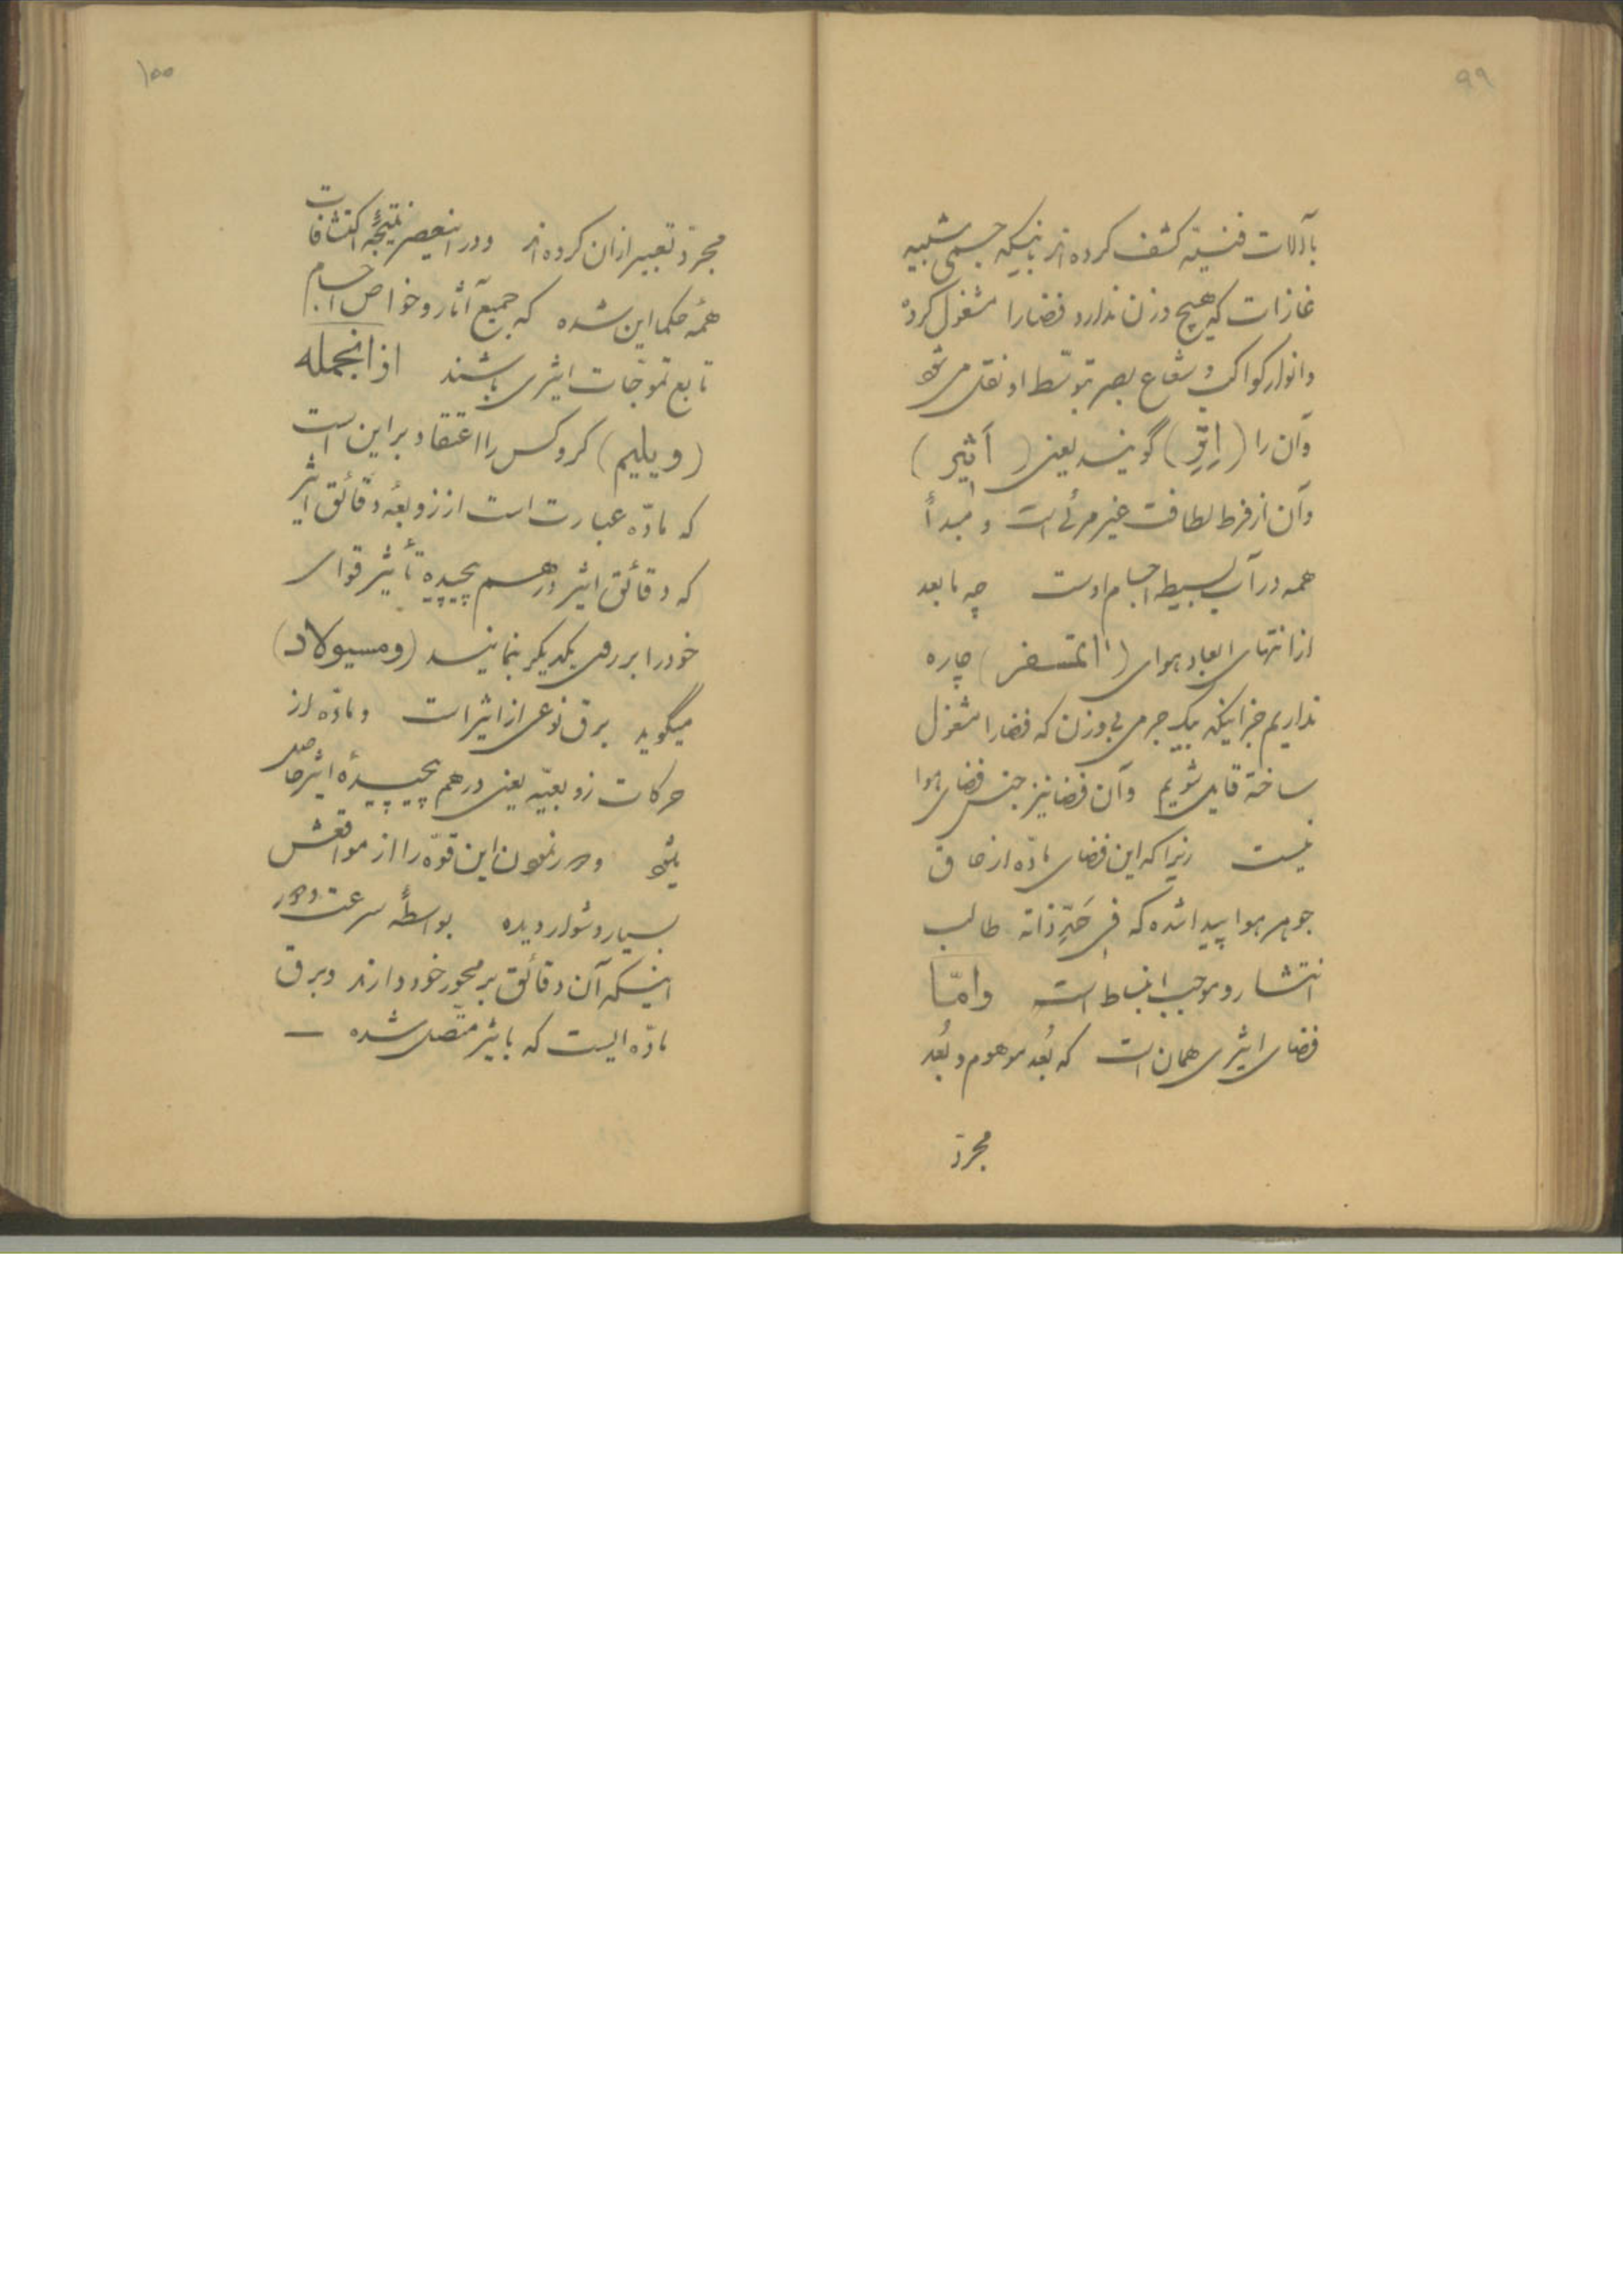 ۹۹
بآلات فنیّه کشف کرده‌اند باینکه جسمی شبیه
غازات که هیچ وزن ندارد فضا را مشغول کرده
وانوار کواکب و شعاع بصر بتوسّط او نقل می شود
وآن را (اِتِرِ) گویند یعنی (اَثیر)
وآن از فرط لطافت غیر مرئی است و مبدأ
همه در آب بسیط اجسام اوست چه مابعد
از انتهای ابعاد هوای (اتمسفر) چاره
نداریم جز اینکه بیک جرمی بی وزن که فضا را مشغول
ساخته قایل شویم وآن فضا نیز جنس فضای هوا
نیست زیرا که این فضای مادّه از حاق
جوهر هوا پیدا شده که فی حَیِّز ذاته طالب
انتشار و موجب انبساط است وامّا
فضای اثیری همان است که بُعد موهوم و بُعد
مجرّد
۱۰۰
مجرّد تعبیر ازان کرده‌اند ودر اینعصر نتیجهٔ اکتشافات
همهٔ حکما این شده که جمیع آثار و خواص اجسام
تابع تموّجات اثیری باشند ازانجمله
(ویلیم) کروکس را اعتقاد بر این است
که مادّه عبارت است از زوبعهٔ دقائق اثیر
که دقائق اثیر درهم پیچیده تأثیر قوای
خود را بر روی یکدیگر بنمایند (ومسیولاد)
میگوید برق نوعی از اثیر است و مادّه از
حرکات زوبعیّه یعنی درهم پیچیدهٔ اثیر حاصل
بشود و دور نمودن این قوّه را از مواقعش
بسیار دشوار دیده بواسطهٔ سرعت دور
اینکه آن دقائق بر محور خود دارند و برق
مادّه ایست که باثیر متّصل شده —